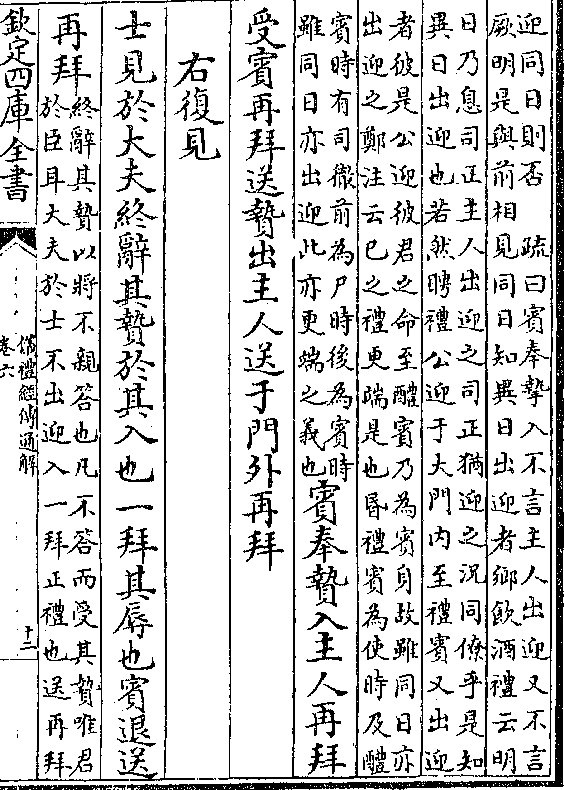 迎同日則否　疏曰賓奉摯入不言主人出迎又不言
厥明是與前相見同日知異日出迎者鄉飲酒禮云明
日乃息司正主人出迎之司正猶迎之況同僚乎是知
異日出迎也若然聘禮公迎于大門内至禮賓又出迎
者彼是公迎彼君之命至醴賓乃為賓身故雖同日亦
出迎之鄭注云已之禮更端是也昏禮賓為使時及醴
賓時有司徹前為尸時後為賓時
雖同日亦出迎此亦更端之義也
賓奉贄入主人再拜
受賓再拜送贄出主人送于門外再拜
右復見
士見於大夫終辭其贄於其入也一拜其辱也賓退送
再拜
終辭其贄以將不親答也凡不答而受其贄唯君
於臣耳大夫於士不出迎入一拜正禮也送再拜
欽定四庫全書
儀禮經傳通解
卷六
十二